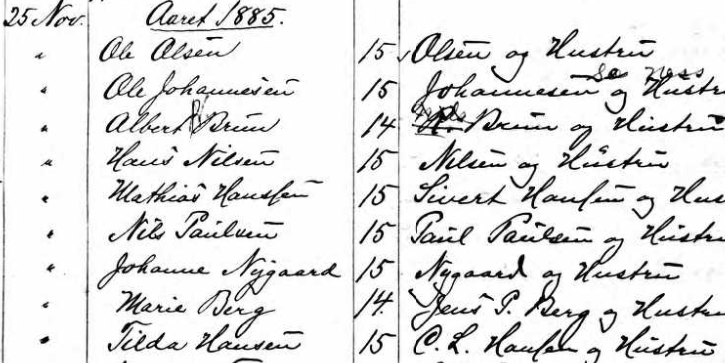 25 Nov. Aaret 1885.
" Ole Olsen 15 Olsen og Hustru
" Ole Johannesen 15 Johannesen og Hustr
" Albert Brun 14 Brun og Hustru
" Hans Nilsen 15 Nilsen og Hustru
" Mathias Hanssen 15 Sivert Hansen og Hus
" Nils Paulsen 15 Paul Paulsen og Hustru
" Johanne Nygaard 15 Nygaard og Hustru
" Marie Berg 14. Jens P. Berg og Hustru
" Tilda Hansen 15 C. L. Hansen og Hustru